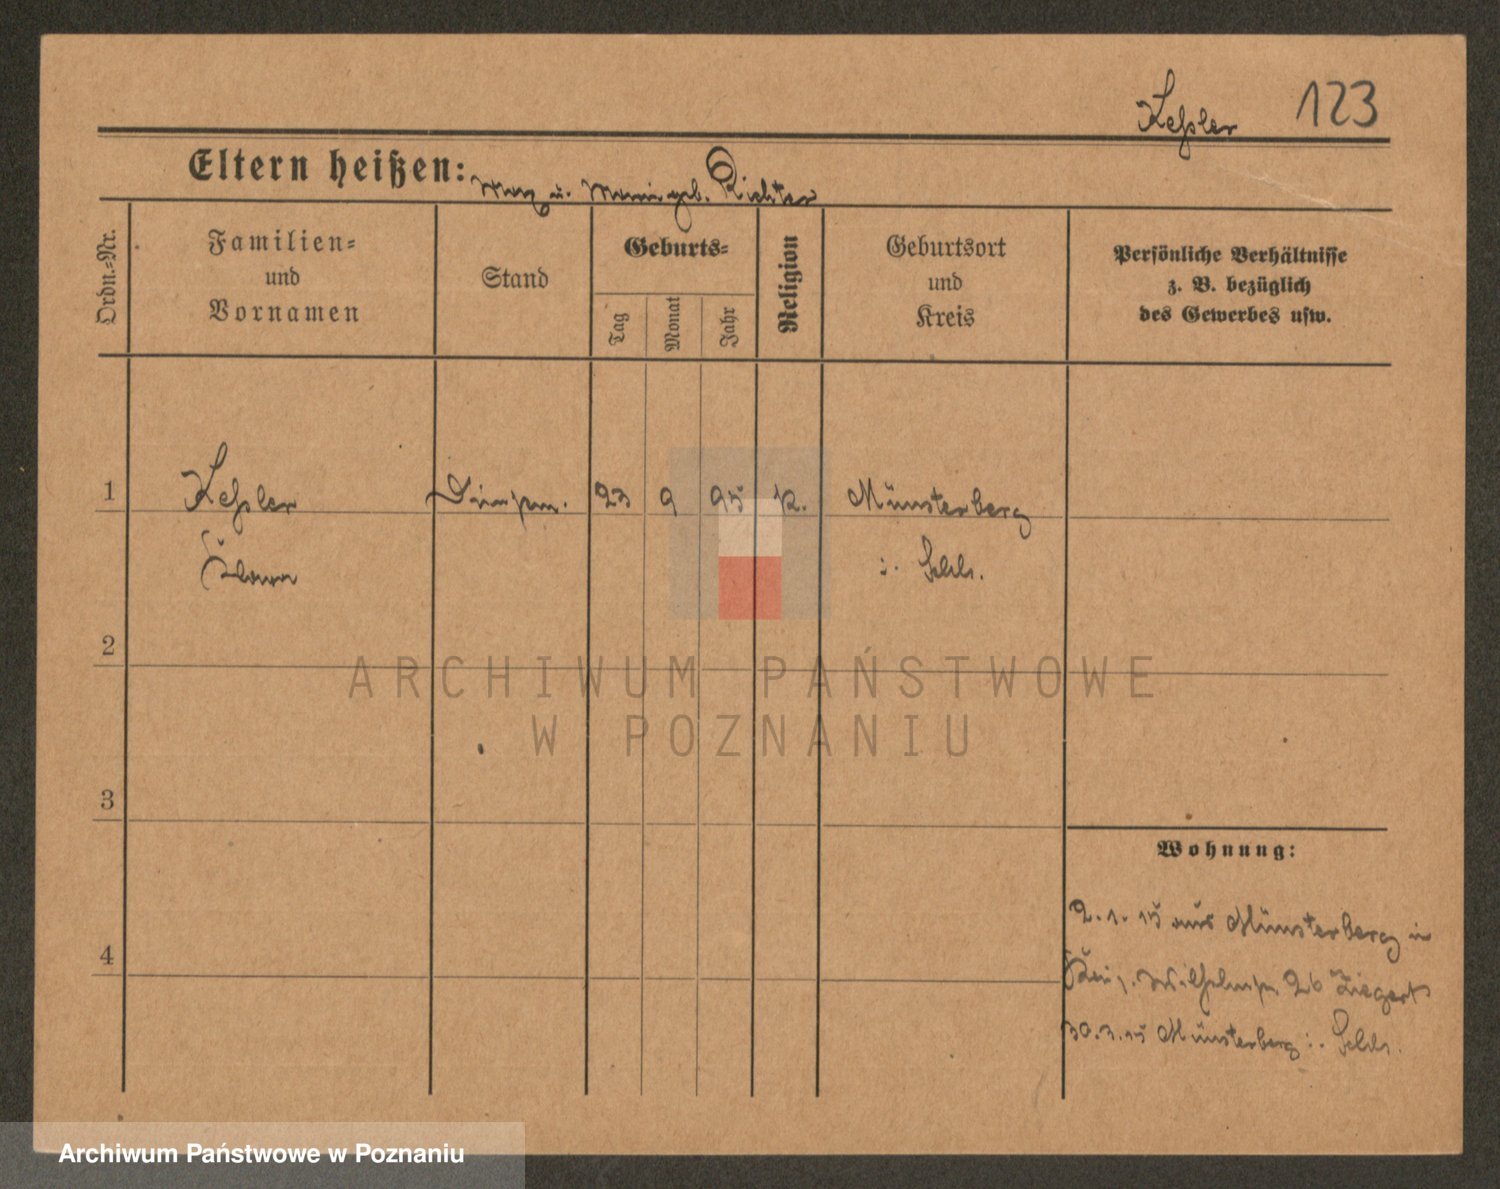 Keßler 123
Eltern heißen: u. geb. Richter
Ordn.=Nr.
Familien=
und
Vornamen
Stand
Geburts=
Tag
Monat
Jahr
Religion
Geburtsort
und
Kreis
Persönliche Verhältnisse
z. B. bezüglich
des Gewerbes usw.
1 Keßler 23 9 95 k. Münsterberg
i. Schls.
2
3
4
Wohnung:
2. 1. 15 aus Münsterberg in
26
30. 3. 15 Münsterberg i. Schls.
ARCHIWUM PAŃSTWOWE
W POZNANIU
Archiwum Państwowe w Poznaniu